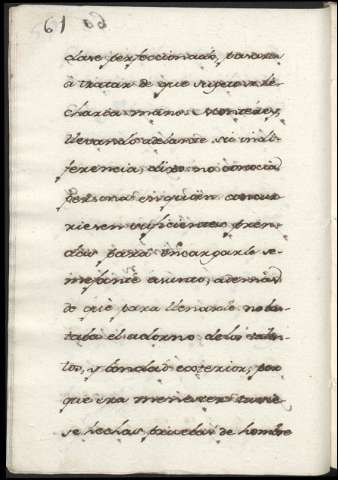 61 60
clave perfeccionado, pasaron
à tratar de que sujeto se le
echaria mano: Montenes,
llevando adelante su indi-
ferencia, dixo no conocia
persona en quien concur-
riesen suficientes pren-
das para encargarle se-
mejante asunto, ademas
de que para llenarle no bas-
taba el adorno de los talen-
tos, y bondad exterior, por
que era menester tuvie
se hechas pruebas de hombre